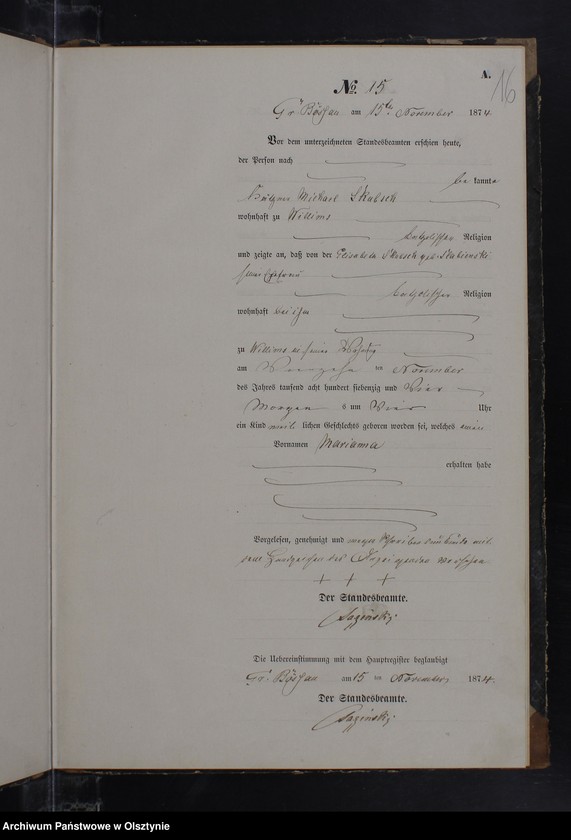 A.
16
No. 15
Gr. Bössau am 15ten November 1874.
Vor dem unterzeichneten Standesbeamten erschien heute,
der Person nach
bekannte
Michael Skubsch
wohnhaft zu Willims
katholischer Religion
und zeigte an, daß von der Elisabeth Skubsch geb.
seiner Ehefrau
katholischer Religion
wohnhaft bei ihm
zu Willims in seiner Wohnung
am ten November
des Jahres tausend acht hundert siebenzig und vier
Morgens um vier Uhr
ein Kind weiblichen Geschlechts geboren worden sei, welches einen
Vornamen Marianna
erhalten habe
Vorgelesen, genehmigt und wegen Schreibensunkunde mit
dem Handzeichen des Anzeigenden versehen
+ + +
Der Standesbeamte.
Die Uebereinstimmung mit dem Hauptregister beglaubigt
Gr. Bössau am 15 ten November 1874.
Der Standesbeamte.
Archiwum Państwowe w Olsztynie